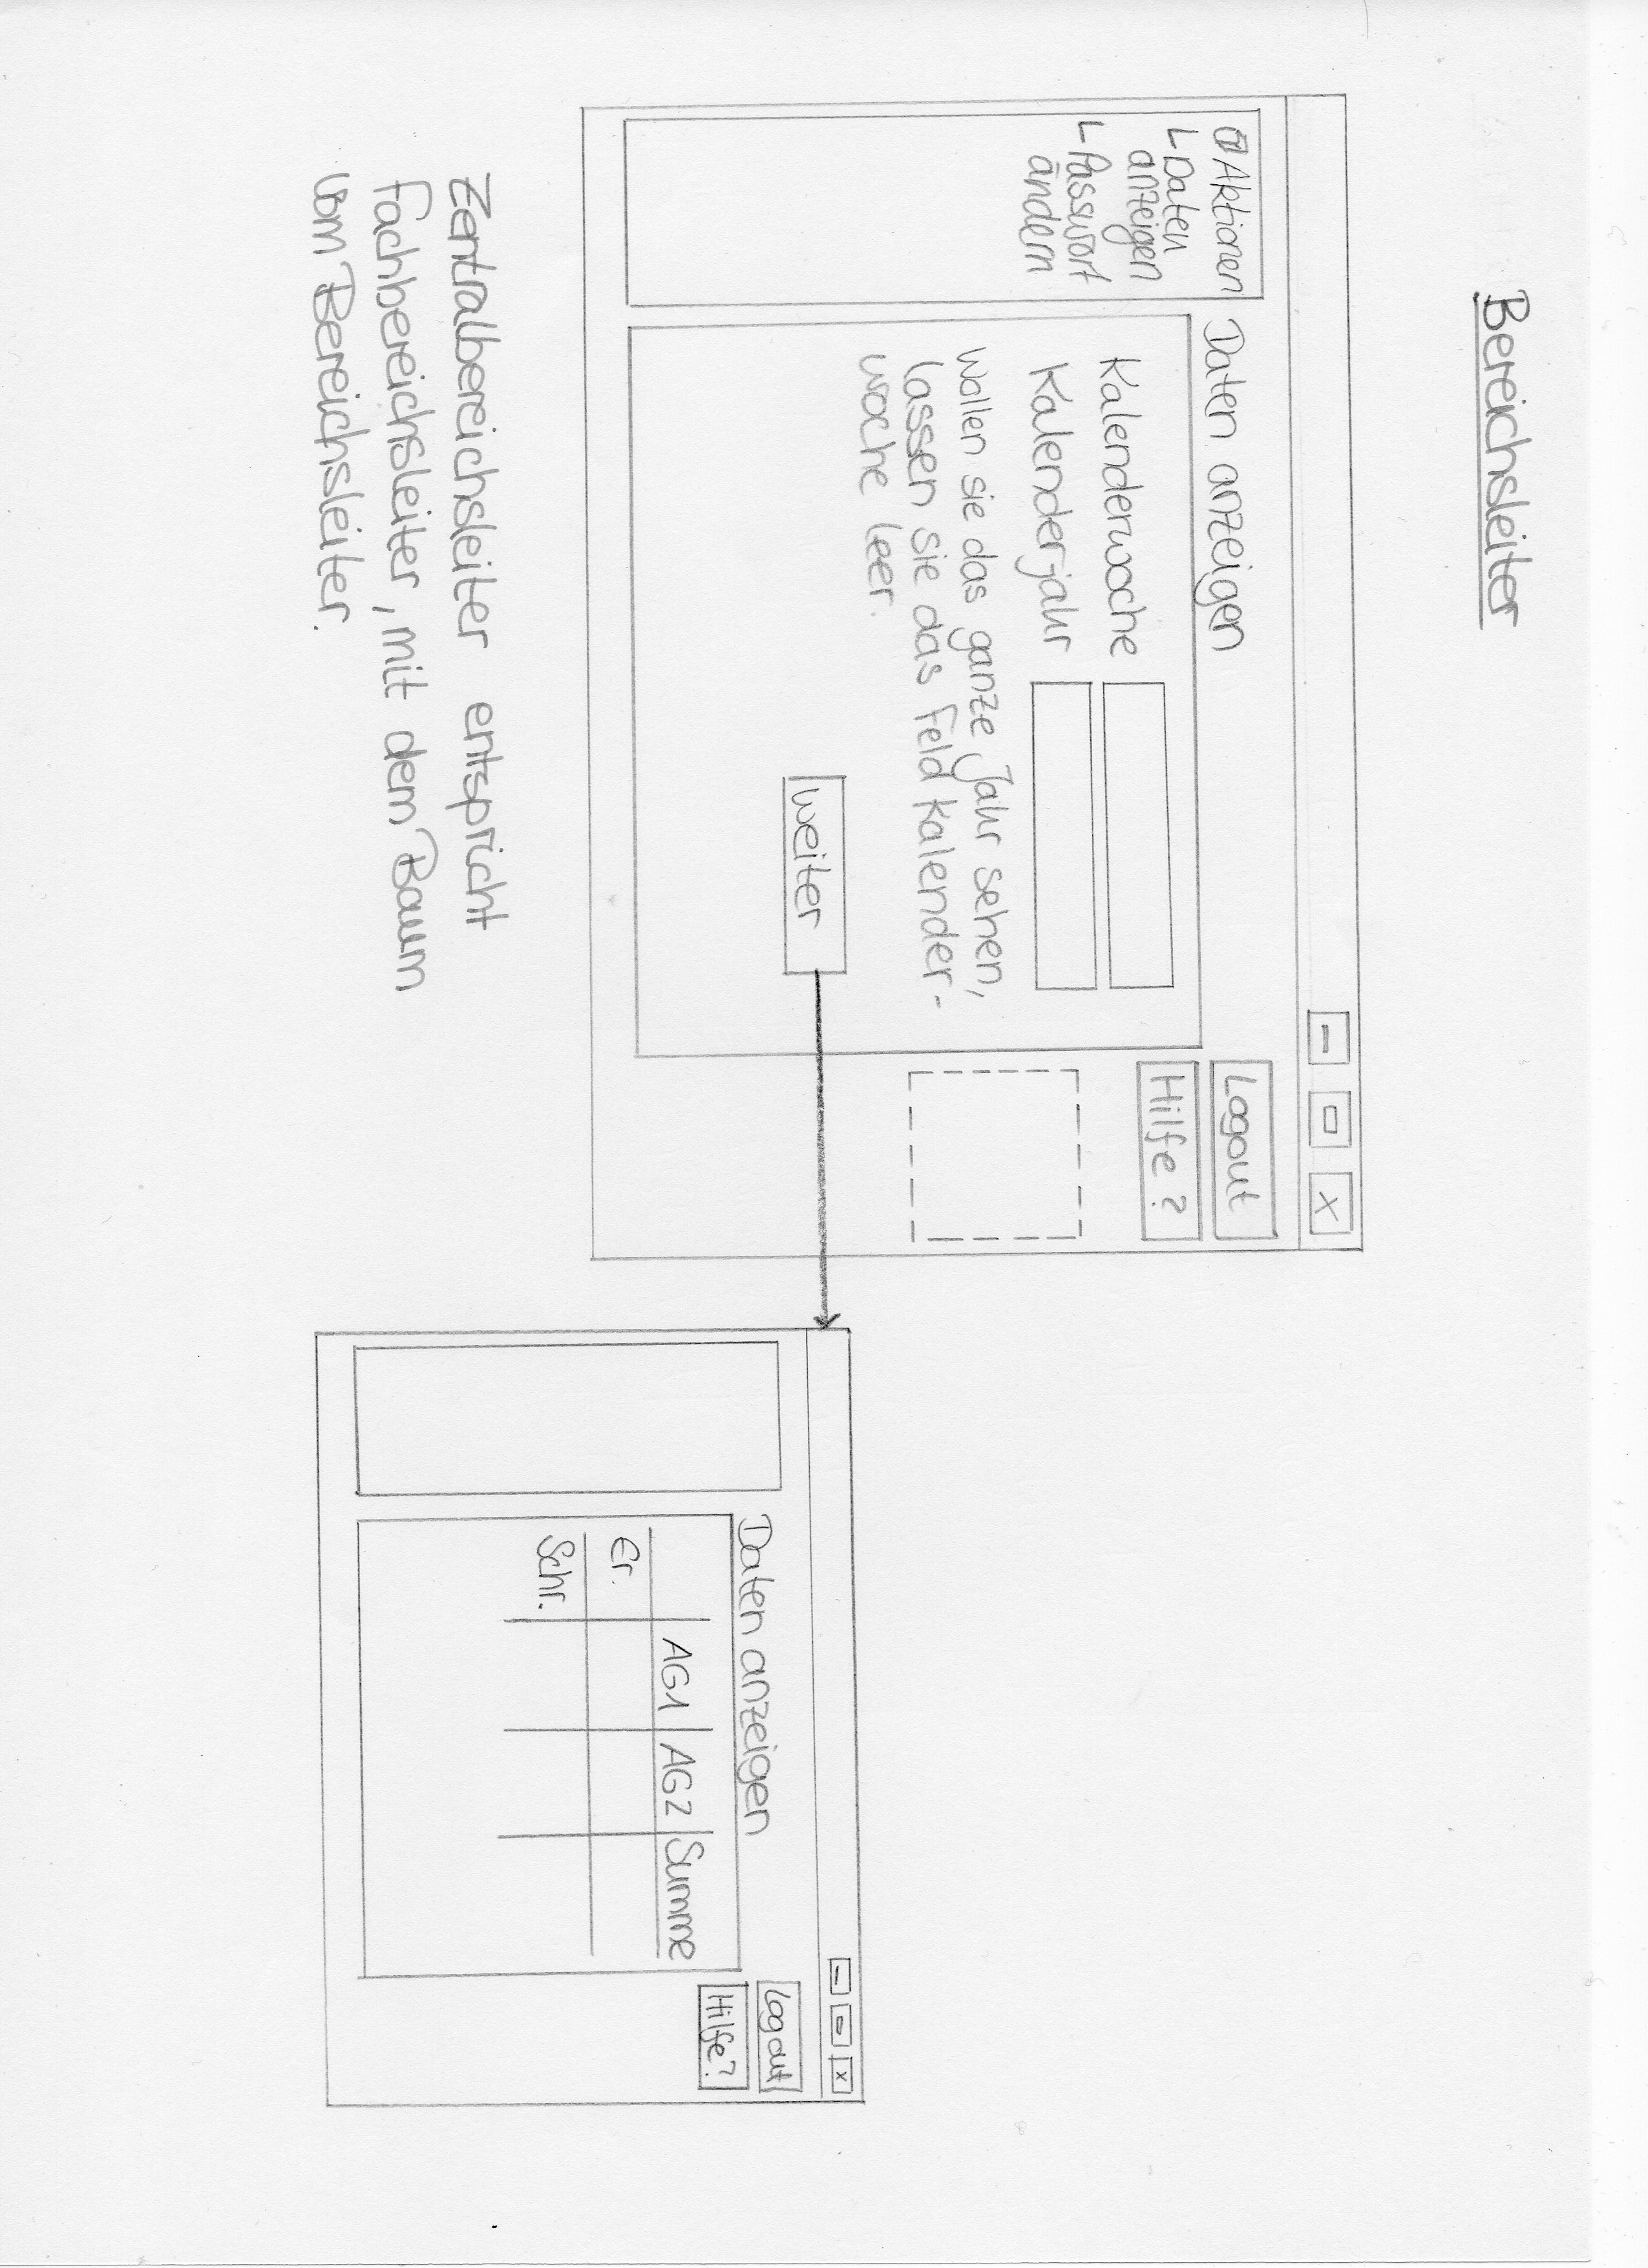 Bereichsleiter
X
Aktionen
Daten
anzeigen
Passwort
ändern
Daten anzeigen
Kalenderwoche
Kalenderjahr
Wollen sie das ganze Jahr sehen,
lassen sie das Feld Kalender-
woche leer.
weiter
Logout
Hilfe ?
X
Daten anzeigen
AG1 AG2 Summe
Er.
Schr.
Logout
Hilfe?
Zentralbereichsleiter entspricht
Fachbereichsleiter, mit dem Baum
vom Bereichsleiter.